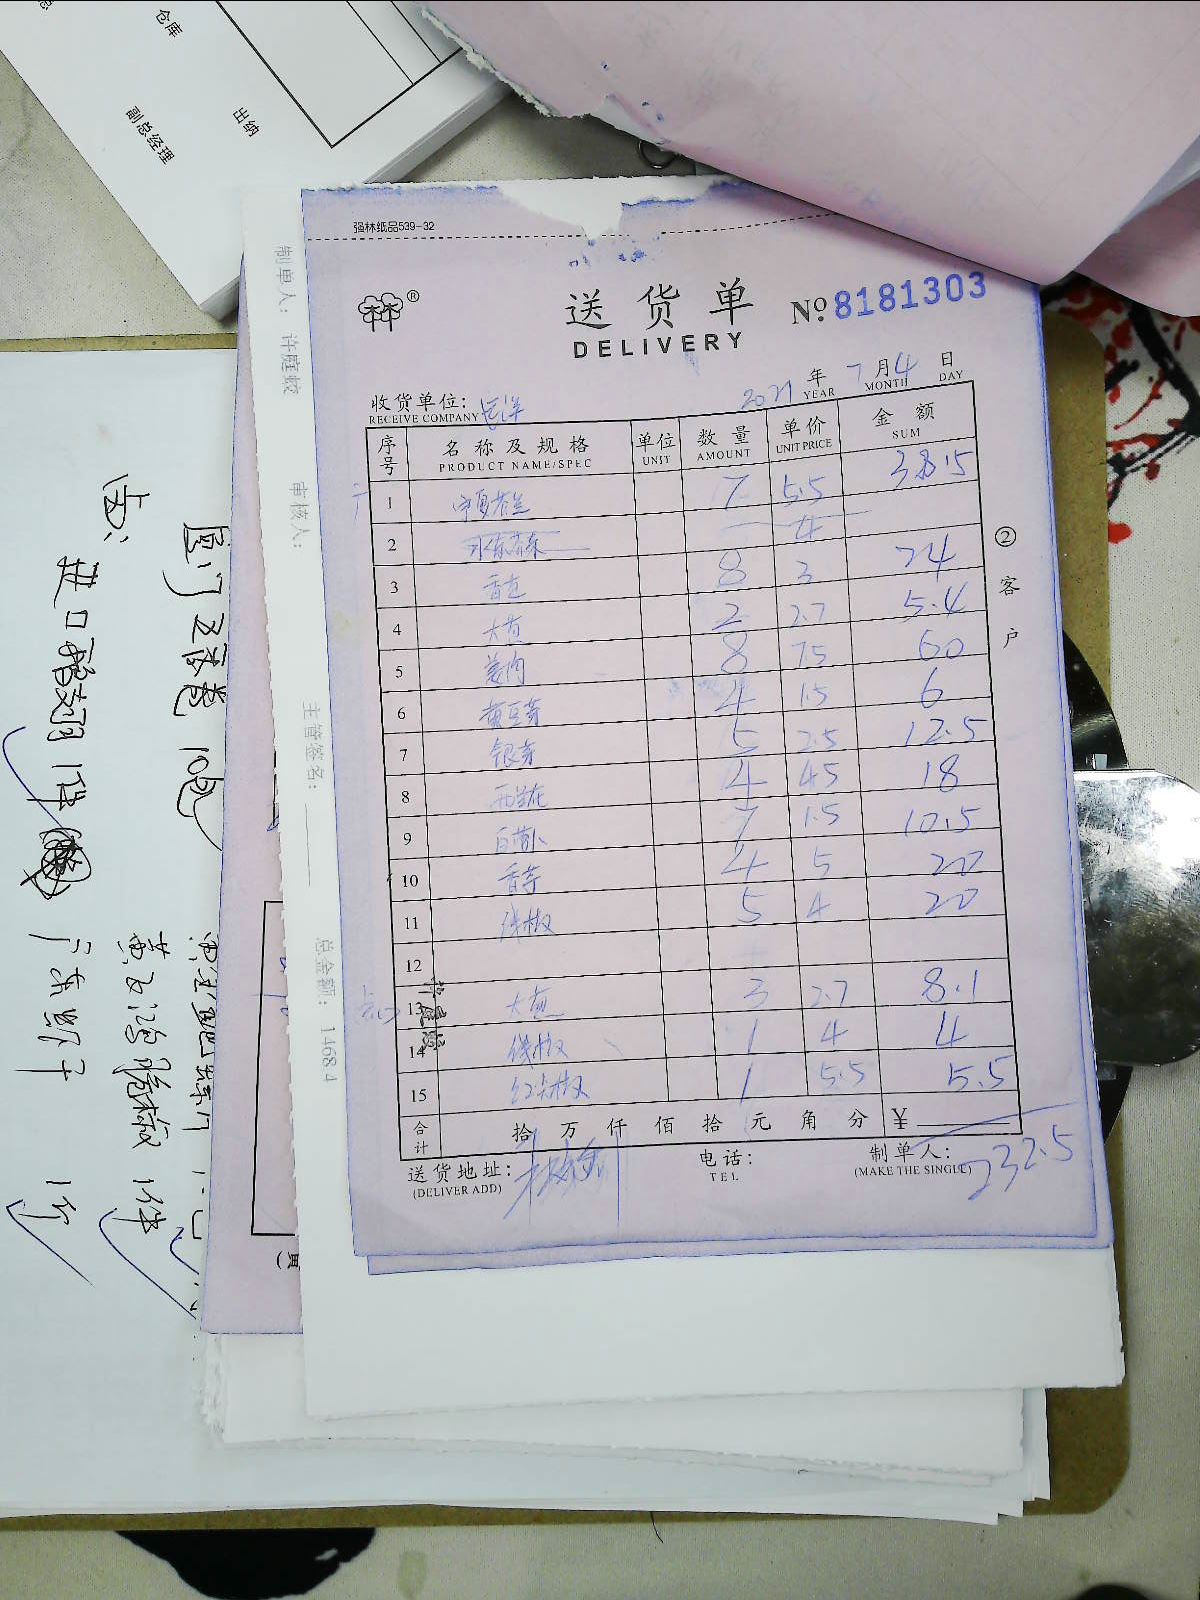 仓库
出纳
副总经理
强林纸品539-32
送货单
DELIVERY
№ 8181303
2021 年 7 月 4 日
YEAR MONTH DAY
收货单位:
RECEIVE COMPANY
序号 名称及规格 单位 数量 单价 金额
PRODUCT NAME/SPEC UNIT AMOUNT UNIT PRICE SUM
1 宁夏菜芯 7 5.5 38.5
2 4
3 香芹 8 3 24
4 大葱 2 2.7 5.4
5 姜肉 8 7.5 60
6 黄豆芽 4 1.5 6
7 银芽 5 2.5 12.5
8 西兰花 4 4.5 18
9 白萝卜 7 1.5 10.5
10 香芋 4 5 20
11 线椒 5 4 20
12
13 大葱 3 2.7 8.1
14 线椒 1 4 4
15 红尖椒 1 5.5 5.5
合计 拾 万 仟 佰 拾 元 角 分 ¥
232.5
送货地址:
(DELIVER ADD)
电话:
TEL
制单人:
(MAKE THE SINGLE)
② 客户
制单人: 许庭蛟
审核人:
主管签名:
总金额: 1468.4